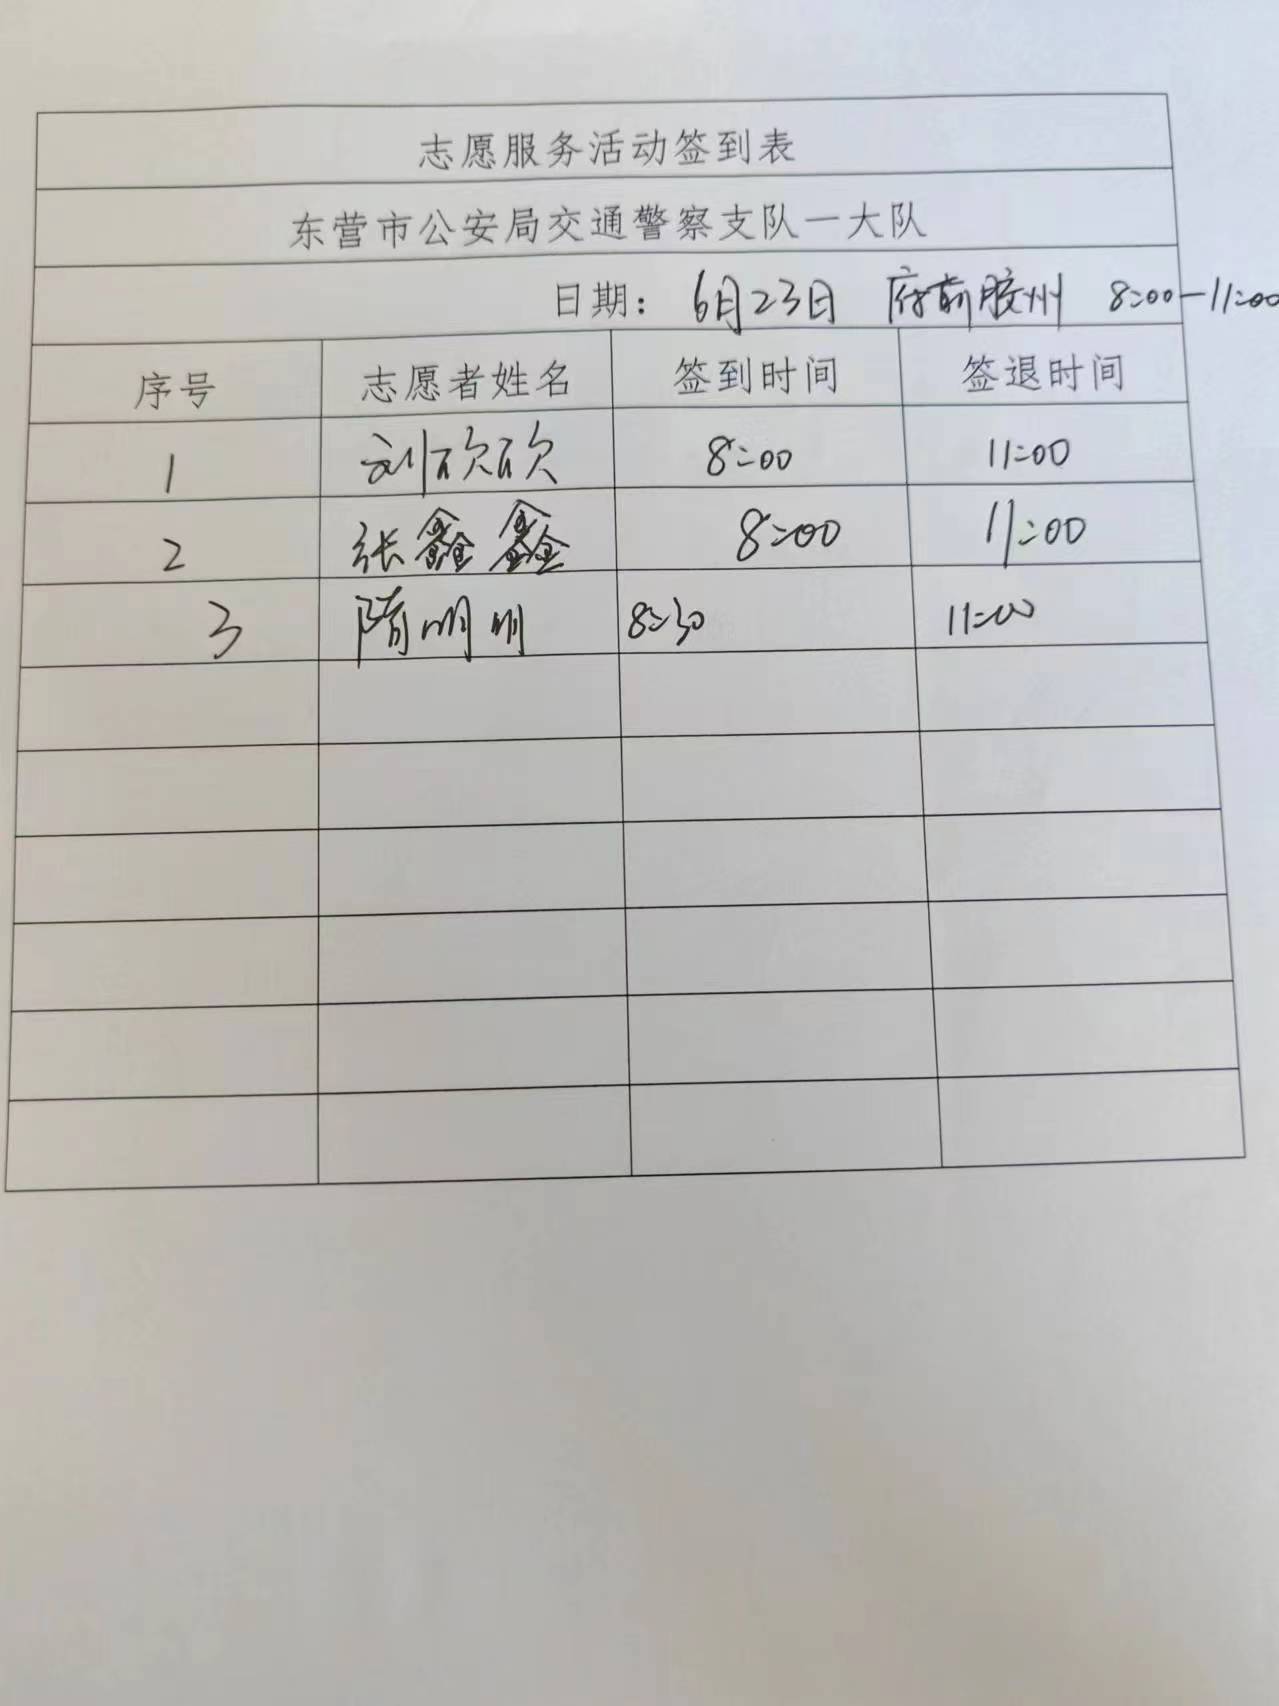 志愿服务活动签到表
东营市公安局交通警察支队一大队
日期： 6月23日 府前胶州 8:00-11:00
序号 志愿者姓名 签到时间 签退时间
1 刘欣欣 8:00 11:00
2 张鑫鑫 8:00 11:00
3 隋明明 8:30 11:00